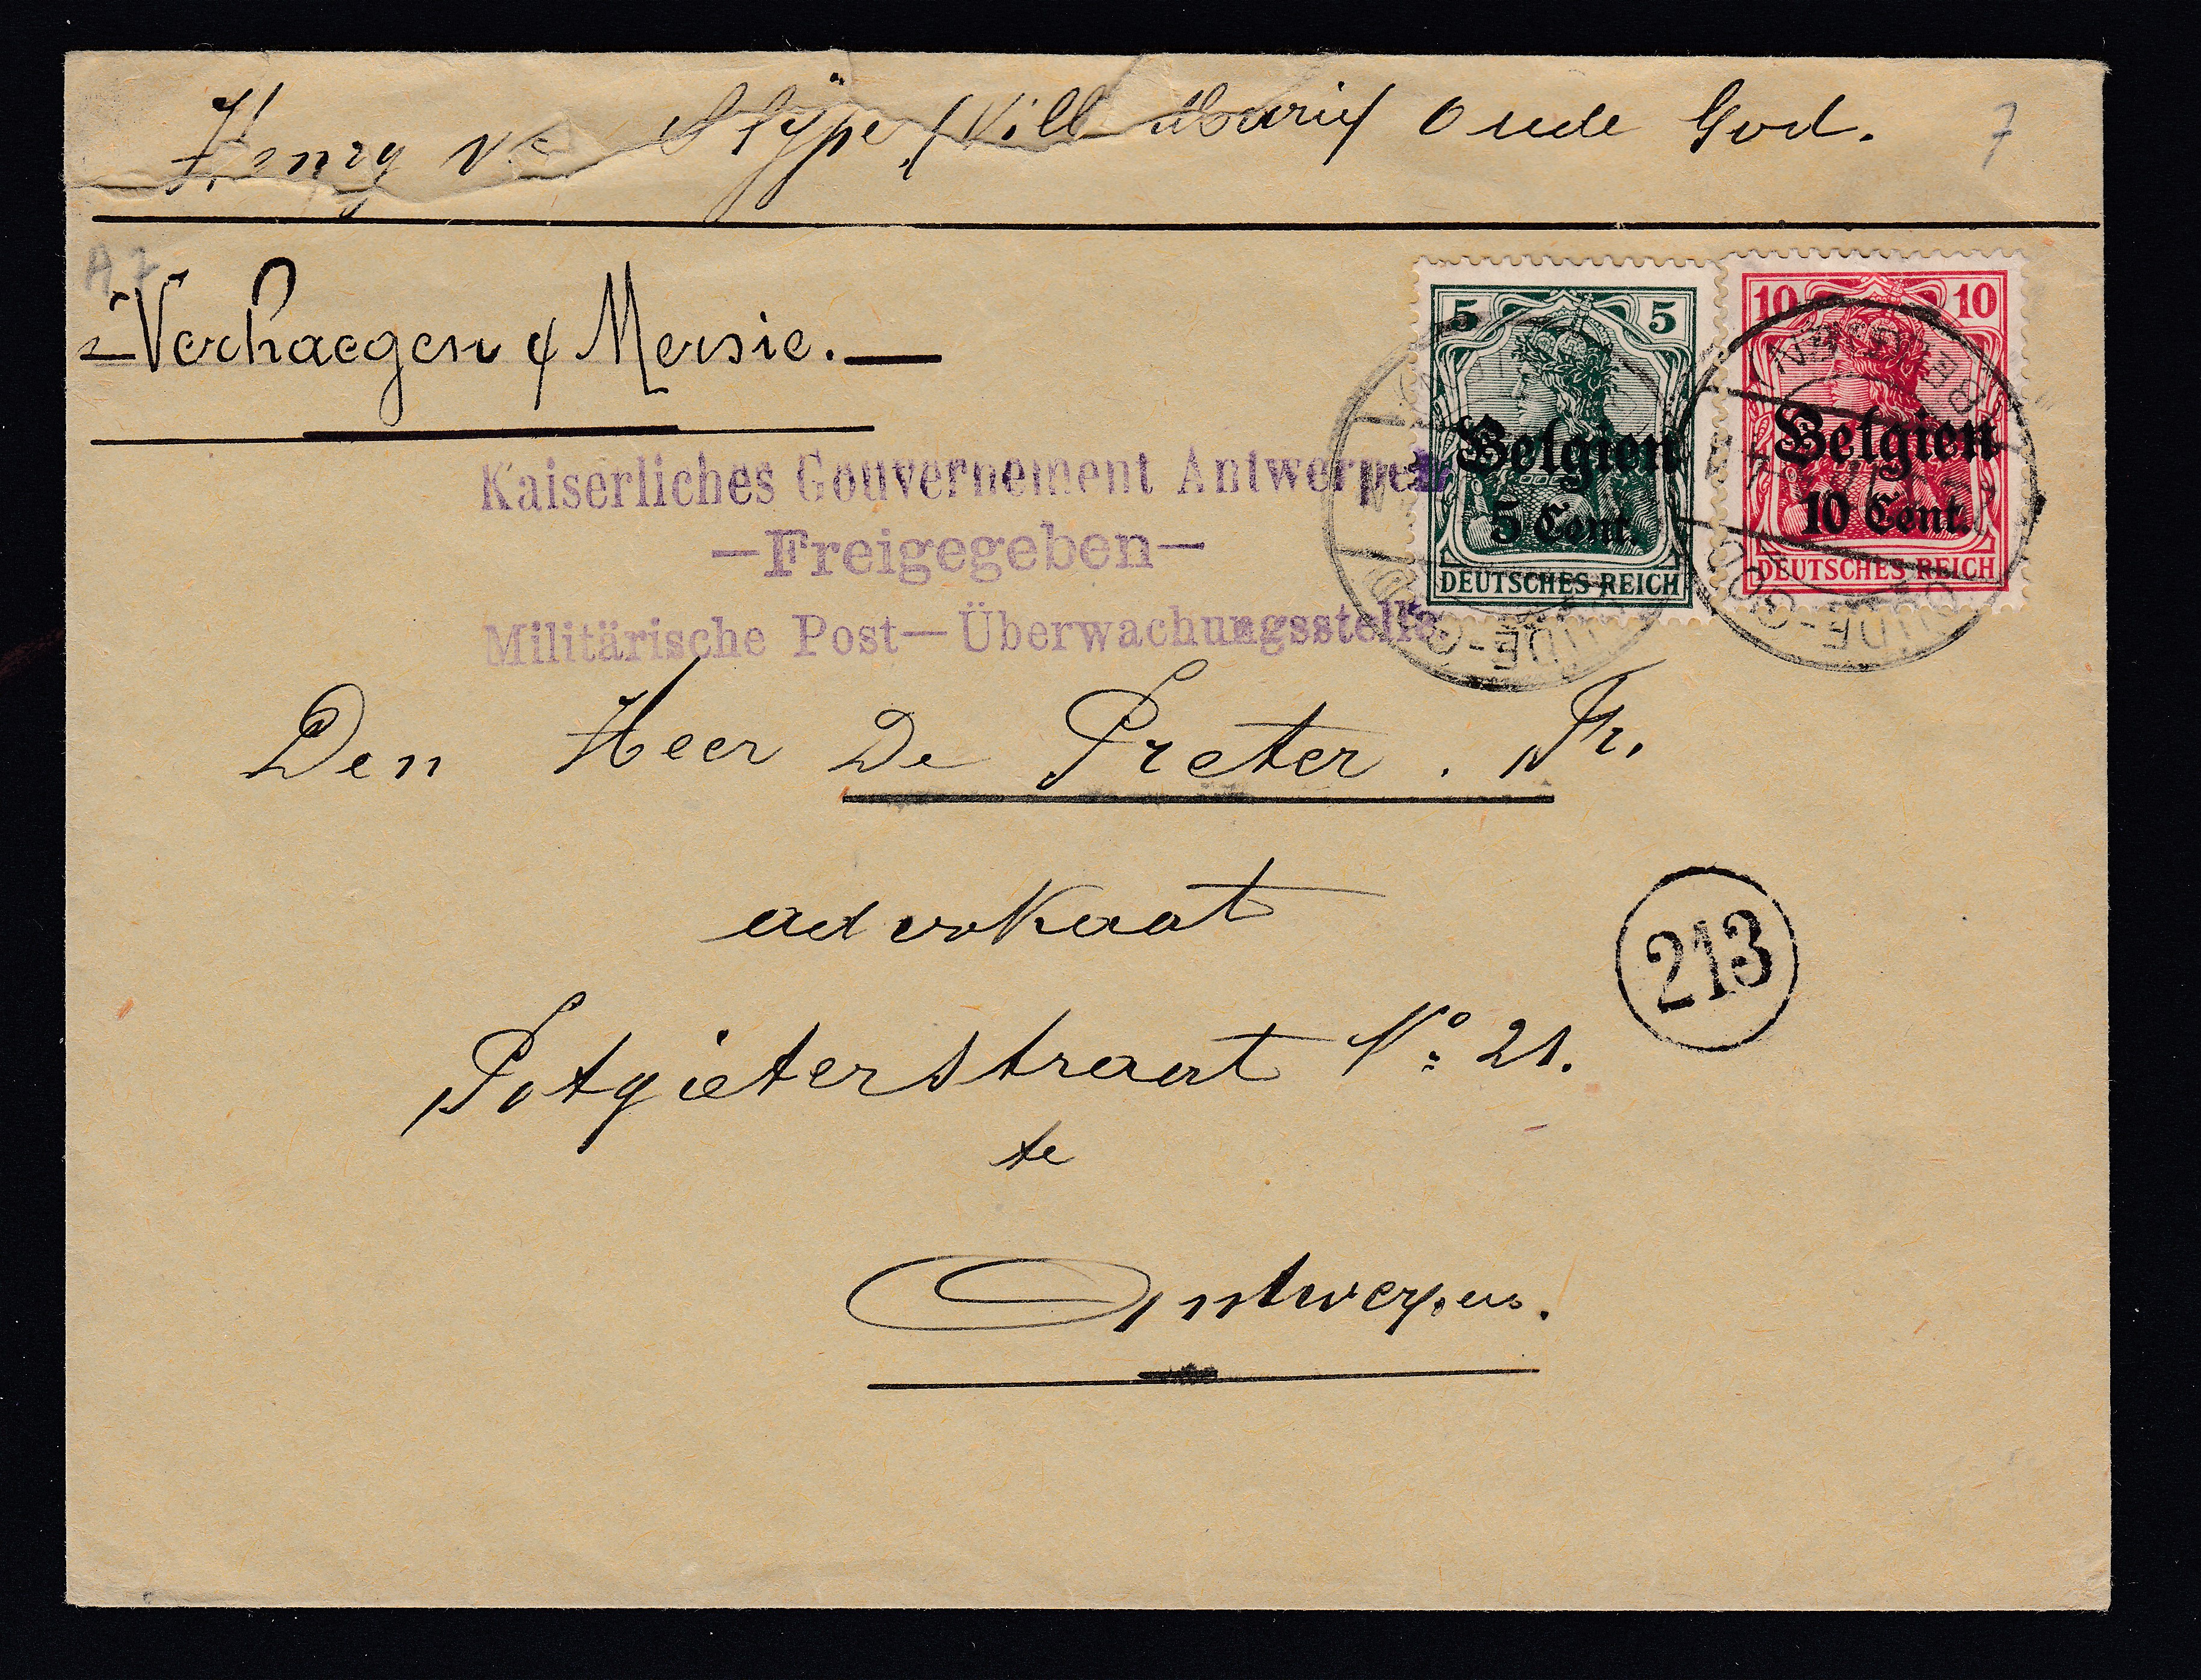 Henry v. Slype, (Vill Marie) Oude God. 7
A7
Verhaegen & Mersie.
5 5
Belgien
5 Cent.
DEUTSCHES REICH
10 10
Belgien
10 Cent.
DEUTSCHES REICH
OUDE-GOD
BELGIEN
OUDE-GOD
Kaiserliches Gouvernement Antwerpen
—Freigegeben—
Militärische Post—Überwachungsstelle
Den Heer De Preter. Fr.
advokaat
213
Potgieterstraat No: 21.
te
Antwerpen.